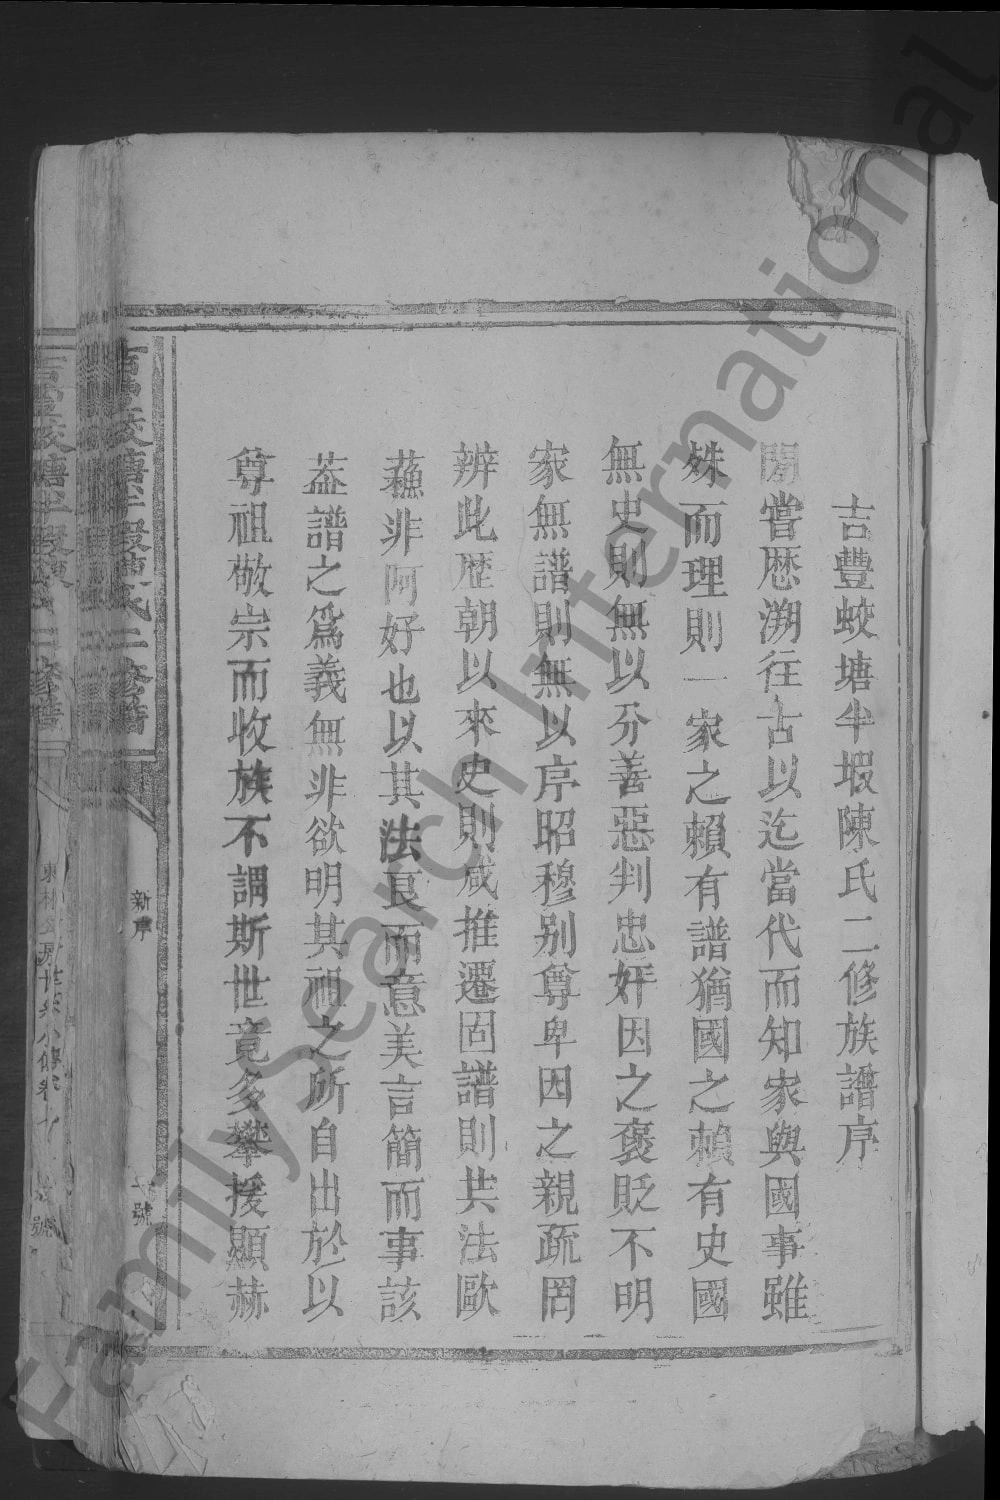 吉豐蛟塘半塅陳氏二修族譜序
閱嘗歷溯往古以迄當代而知家與國事雖
殊而理則一家之賴有譜猶國之賴有史國
無史則無以分善惡判忠奸因之褒貶不明
家無譜則無以序昭穆别尊卑因之親疏罔
辨此歴朝以來史則咸推遷固譜則共法歐
蘓非阿好也以其法良而意美言簡而事該
葢譜之爲義無非欲明其祖之所自出於以
尊祖敬宗而收族不謂斯世竟多攀援顯赫
吉豐蛟塘半塅陳氏二修譜
新序
號
FamilySearch International